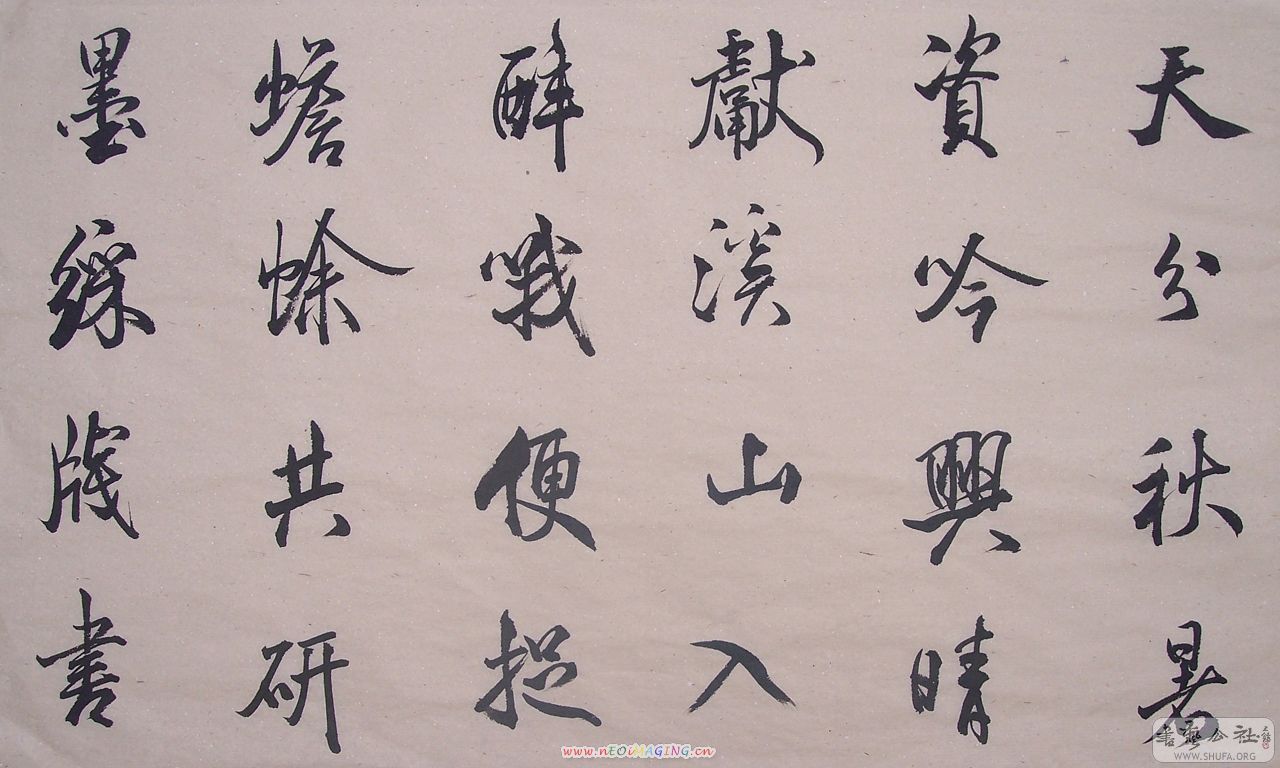 天分秋暑
資吟興晴
獻溪山入
醉哦便捉
蟾蜍共研
墨綵牋書
www.nEOiMAGING.cn
WWW.SHUFA.ORG